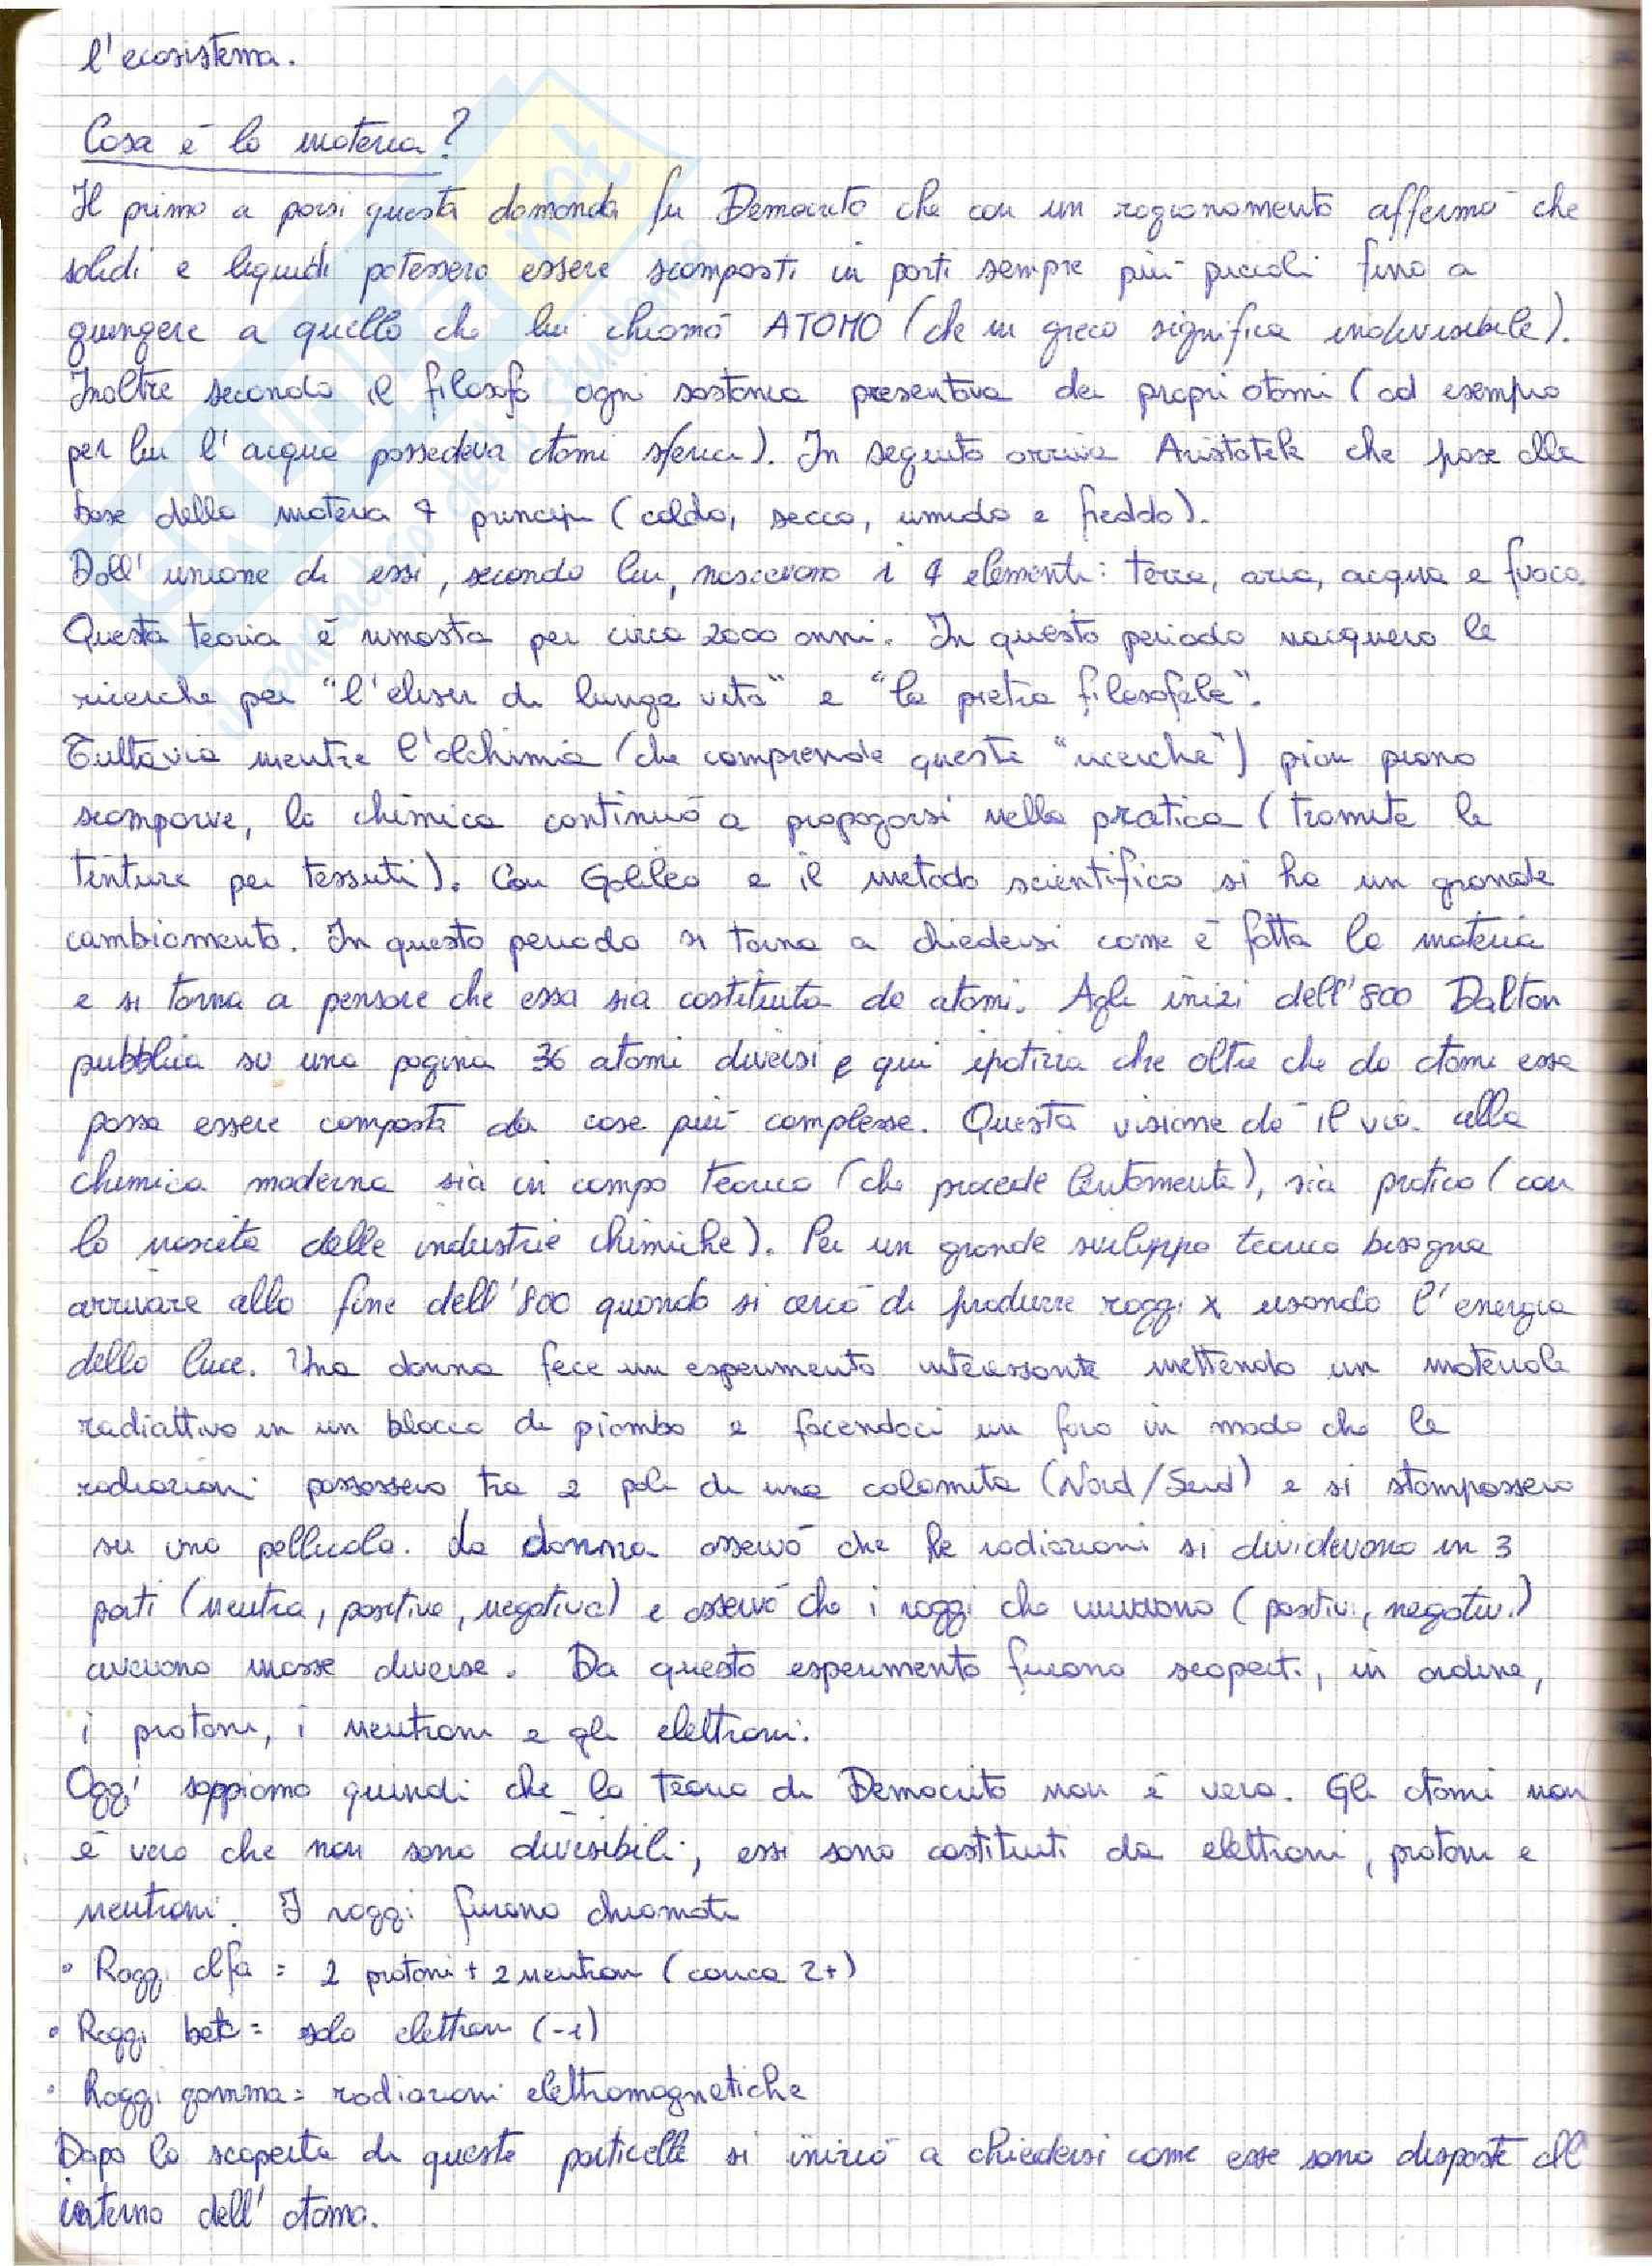 l'ecosistema.
Cosa è la materia?
Il primo a porsi questa domanda fu Democrito che con un ragionamento affermò che
solidi e liquidi potessero essere scomposti in parti sempre più piccoli fino a
giungere a quello che lui chiamò ATOMO (che in greco significa indivisibile).
Inoltre secondo il filosofo ogni sostanza presentava dei propri atomi (ad esempio
per lui l'acqua possedeva atomi sferici). In seguito arriva Aristotele che pose alla
base della materia 4 principi (caldo, secco, umido e freddo).
Dall'unione di essi, secondo lui, nascevano i 4 elementi: terra, aria, acqua e fuoco.
Questa teoria è rimasta per circa 2000 anni. In questo periodo nacquero le
ricerche per "l'elisir di lunga vita" e "la pietra filosofale".
Tuttavia mentre l'alchimia (che comprende queste "ricerche") pian piano
scomparve, la chimica continuò a propagarsi nella pratica (tramite le
tinture per tessuti). Con Galileo e il metodo scientifico si ha un grande
cambiamento. In questo periodo si torna a chiedersi come è fatta la materia
e si torna a pensare che essa sia costituita da atomi. Agli inizi dell'800 Dalton
pubblica su una pagina 36 atomi diversi e qui ipotizza che oltre che da atomi essa
possa essere composta da cose più complesse. Questa visione dà il via alla
chimica moderna sia in campo teorico (che procede lentamente), sia pratico (con
la nascita delle industrie chimiche). Per un grande sviluppo teorico bisogna
arrivare alla fine dell'800 quando si cercò di produrre raggi x usando l'energia
della luce. Una donna fece un esperimento interessante mettendo un materiale
radiattivo in un blocco di piombo e facendoci un foro in modo che le
radiazioni passassero tra 2 poli di una calamita (Nord/Sud) e si stampassero
su una pellicola. La donna osservò che le radiazioni si dividevano in 3
parti (neutra, positiva, negativa) e osservò che i raggi che (positivi, negativi)
avevano masse diverse. Da questo esperimento furono scoperti, in ordine,
i protoni, i neutroni e gli elettroni.
Oggi sappiamo quindi che la teoria di Democrito non è vera. Gli atomi non
è vero che non sono divisibili; essi sono costituiti da elettroni, protoni e
neutroni. I raggi furono chiamati
• Raggi alfa = 2 protoni + 2 neutroni (carica 2+)
• Raggi beta = solo elettroni (-1)
• Raggi gamma = radiazioni elettromagnetiche
Dopo la scoperta di queste particelle si iniziò a chiedersi come esse sono disposte all'
interno dell'atomo.